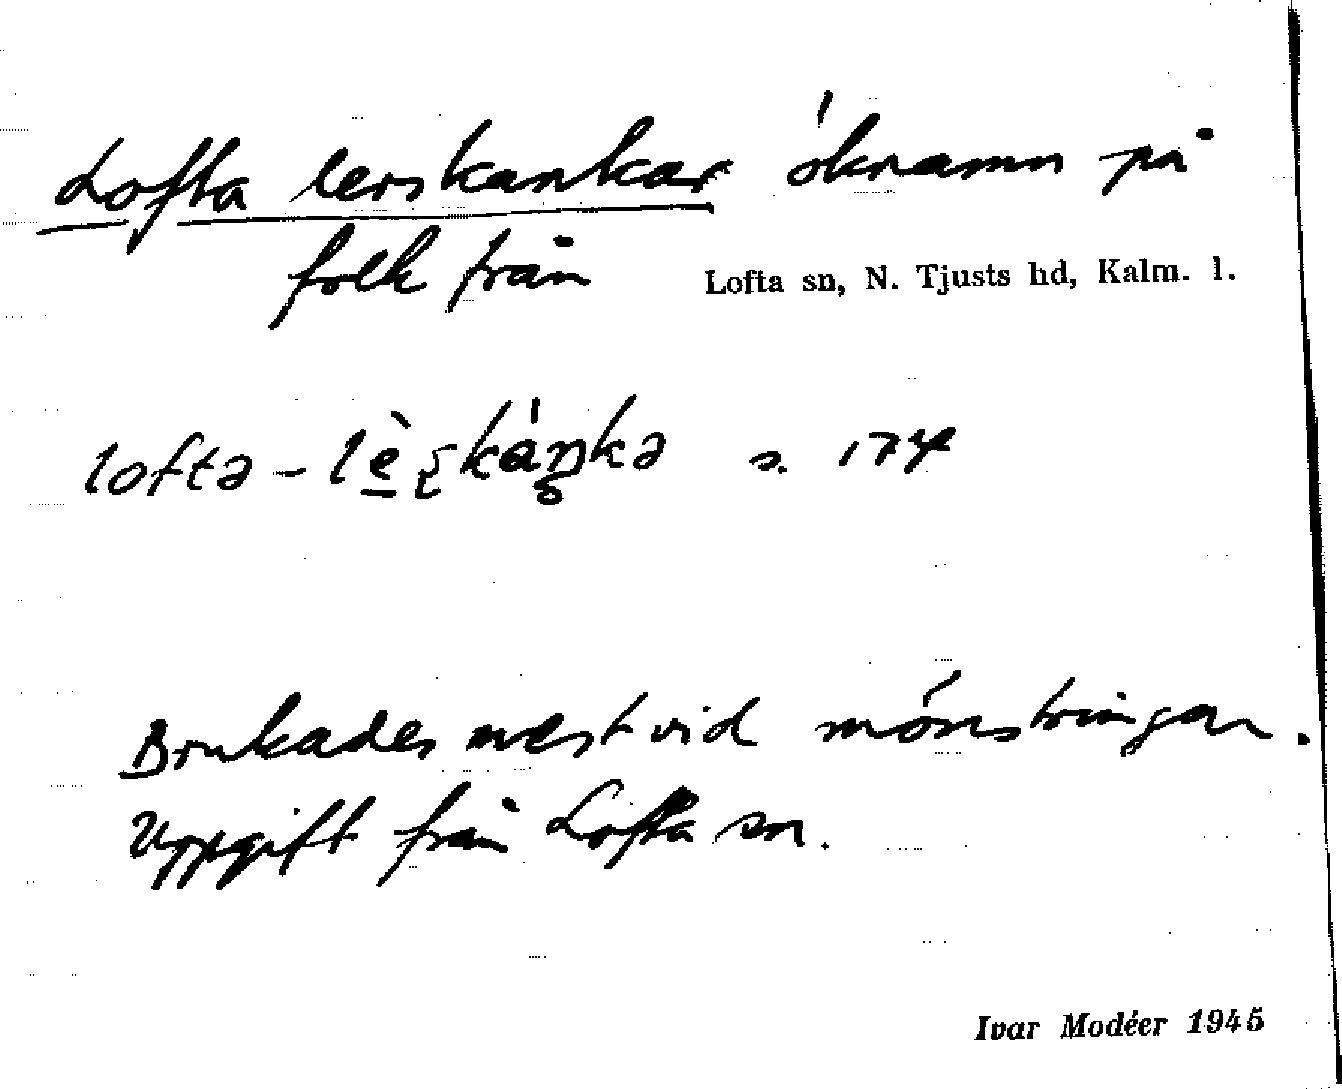 Lofta lerskankar öknamn på
folk från Lofta sn, N. Tjusts hd, Kalm. l.
lofta - s. 174
Brukades mest vid mönstringar.
Uppgift från Lofta sn.
Ivar Modéer 1945